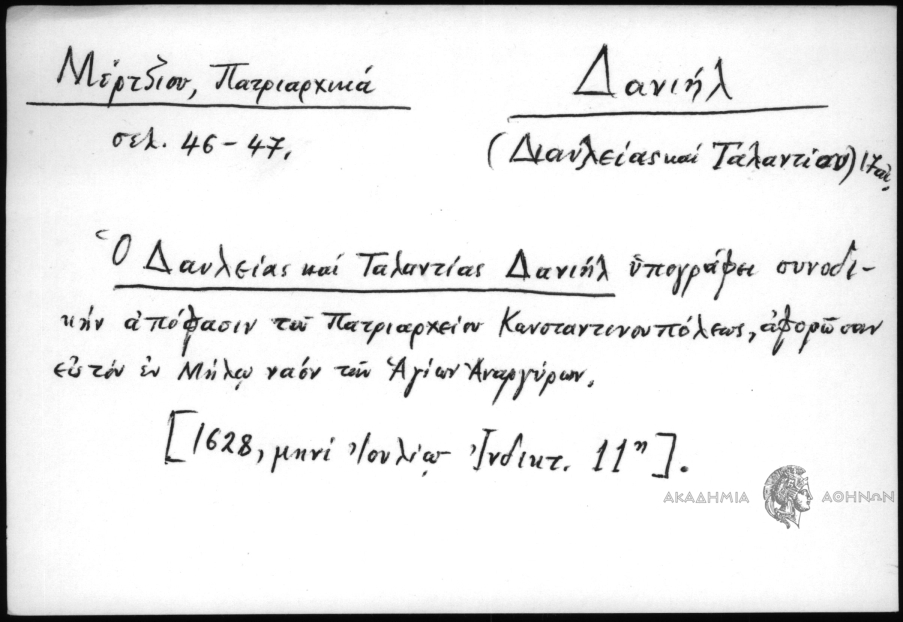 Μέρτζιου, Πατριαρχικά
σελ. 46-47.
Δανιήλ
(Διαυλείας καί Ταλαντίου) 17 αἰ.
Ὁ Δαυλείας καί Ταλαντίας Δανιήλ ὑπογράφει συνοδι-
κήν ἀπόφασιν τοῦ Πατριαρχείου Κωνσταντινουπόλεως, ἀφορῶσαν
εἰς τόν ἐν Μήλῳ ναόν τῶν Ἁγίων Ἀναργύρων.
[1628, μηνί Ἰουλίῳ Ἰνδικτ. 11η].
ΑΚΑΔΗΜΙΑ ΑΘΗΝΩΝ